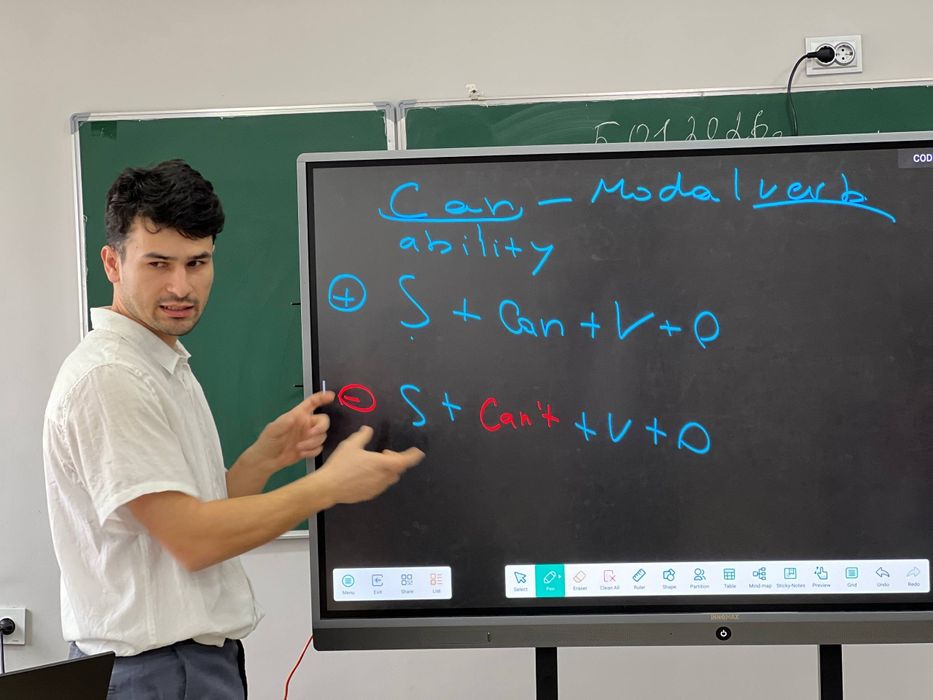 5.01.2026
COD
Can - Modal verb
ability
+ S + Can + V + O
- S + Can't + V + O
Menu Exit Share List Select Pen Eraser Clean All Ruler Shape Partition Table Mind-map Sticky-Notes Preview Grid Undo Redo